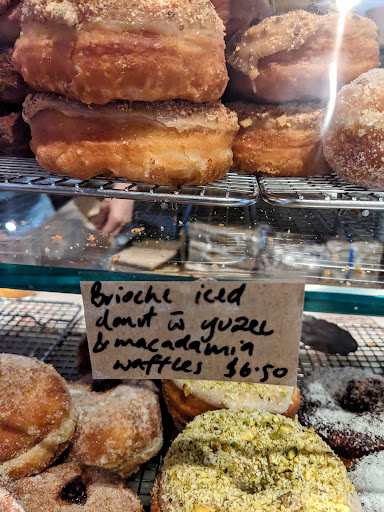 Brioche iced
donut w̄ yuzu
& macadamia
waffles $6.50